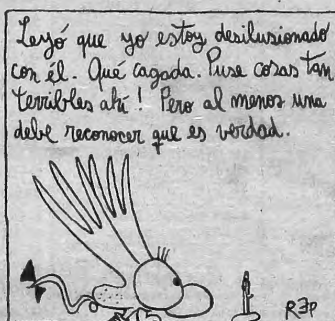 Leyó que yo estoy desilusionado
con él. Qué cagada. Puse cosas tan
terribles ahí! Pero al menos una
debe reconocer que es verdad.
REP